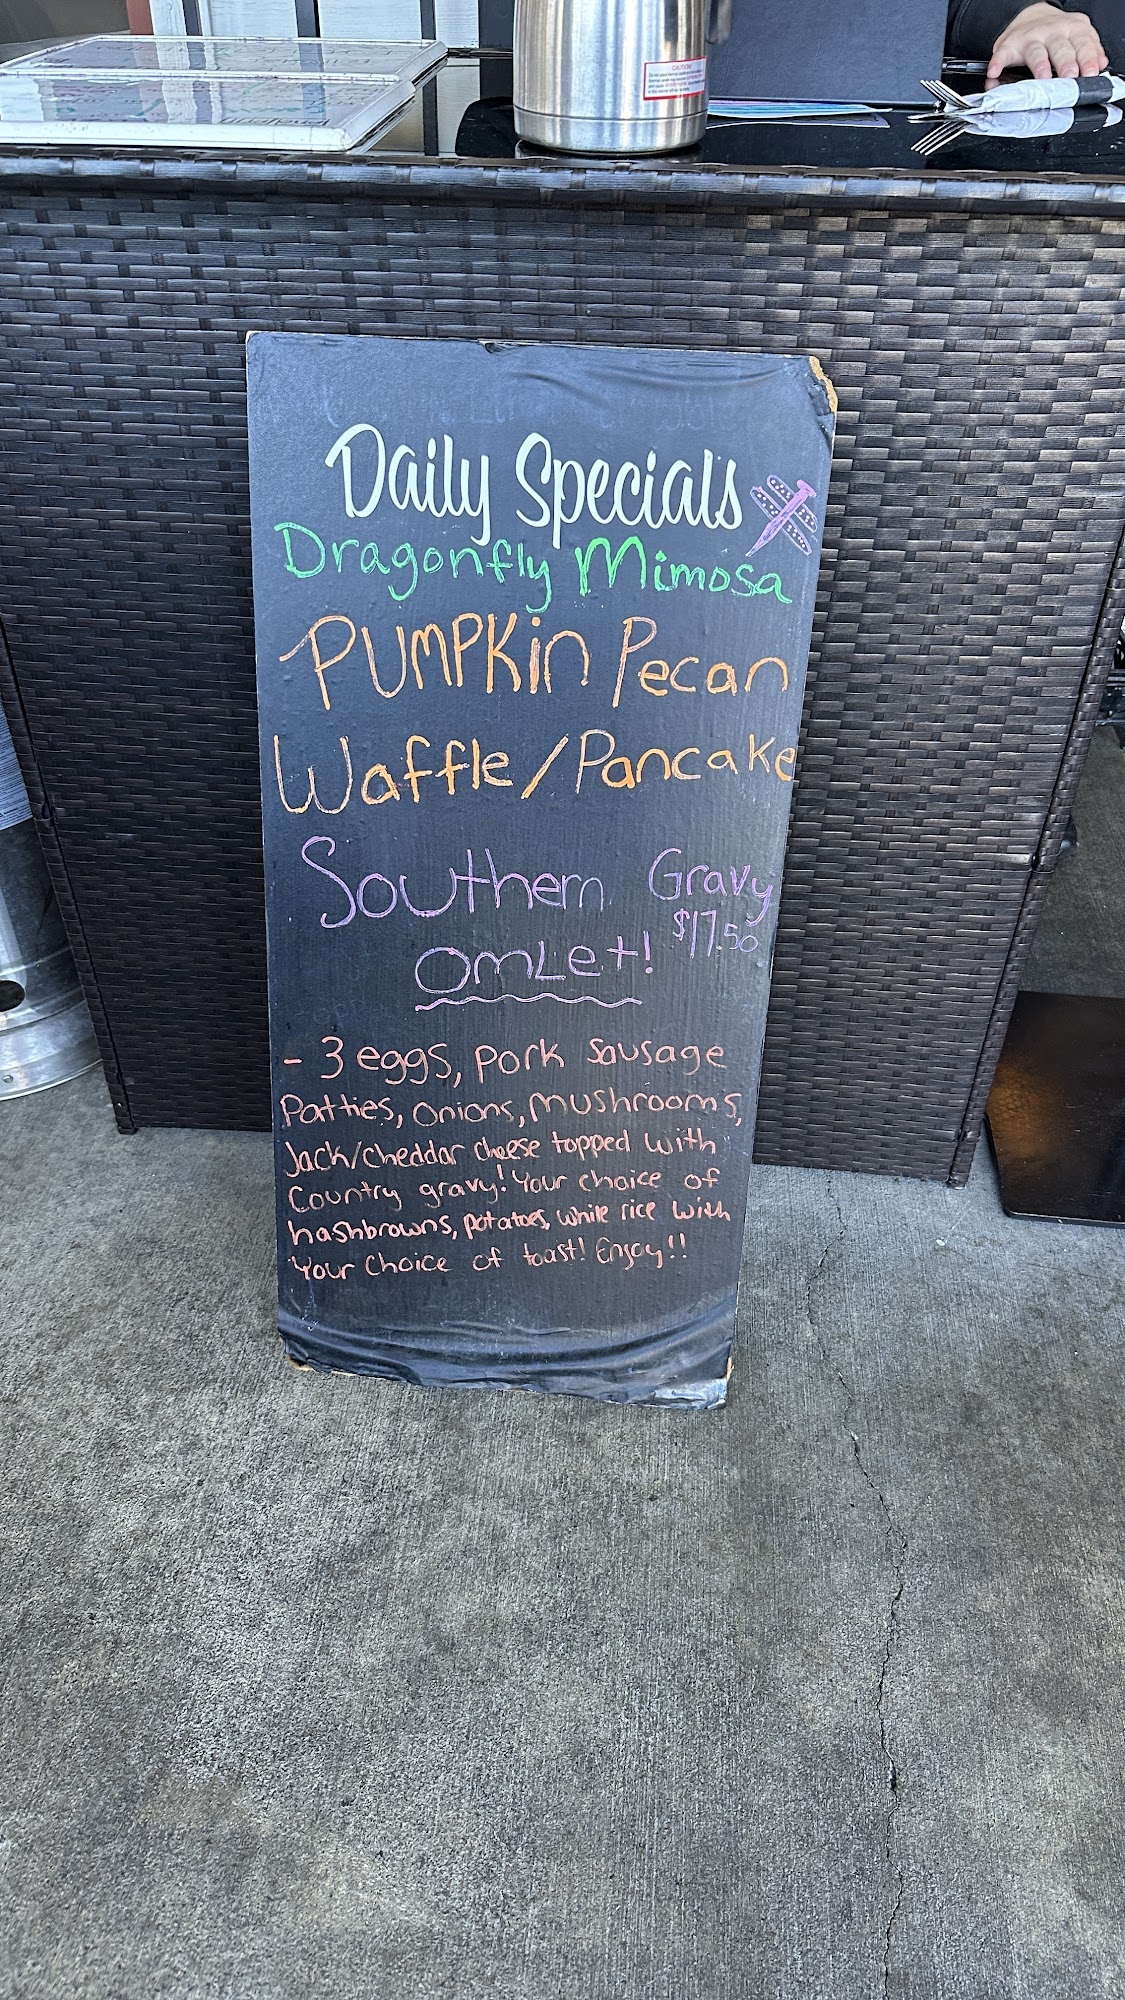 Daily Specials
Dragonfly Mimosa
PUMPKin Pecan
Waffle/Pancake
Southern Gravy
$17.50
OMLet!
- 3 eggs, pork sausage
Patties, onions, mushrooms,
Jack/cheddar cheese topped with
Country gravy! Your choice of
hashbrowns, potatoes, white rice with
Your choice of toast! Enjoy!!
CAUTION